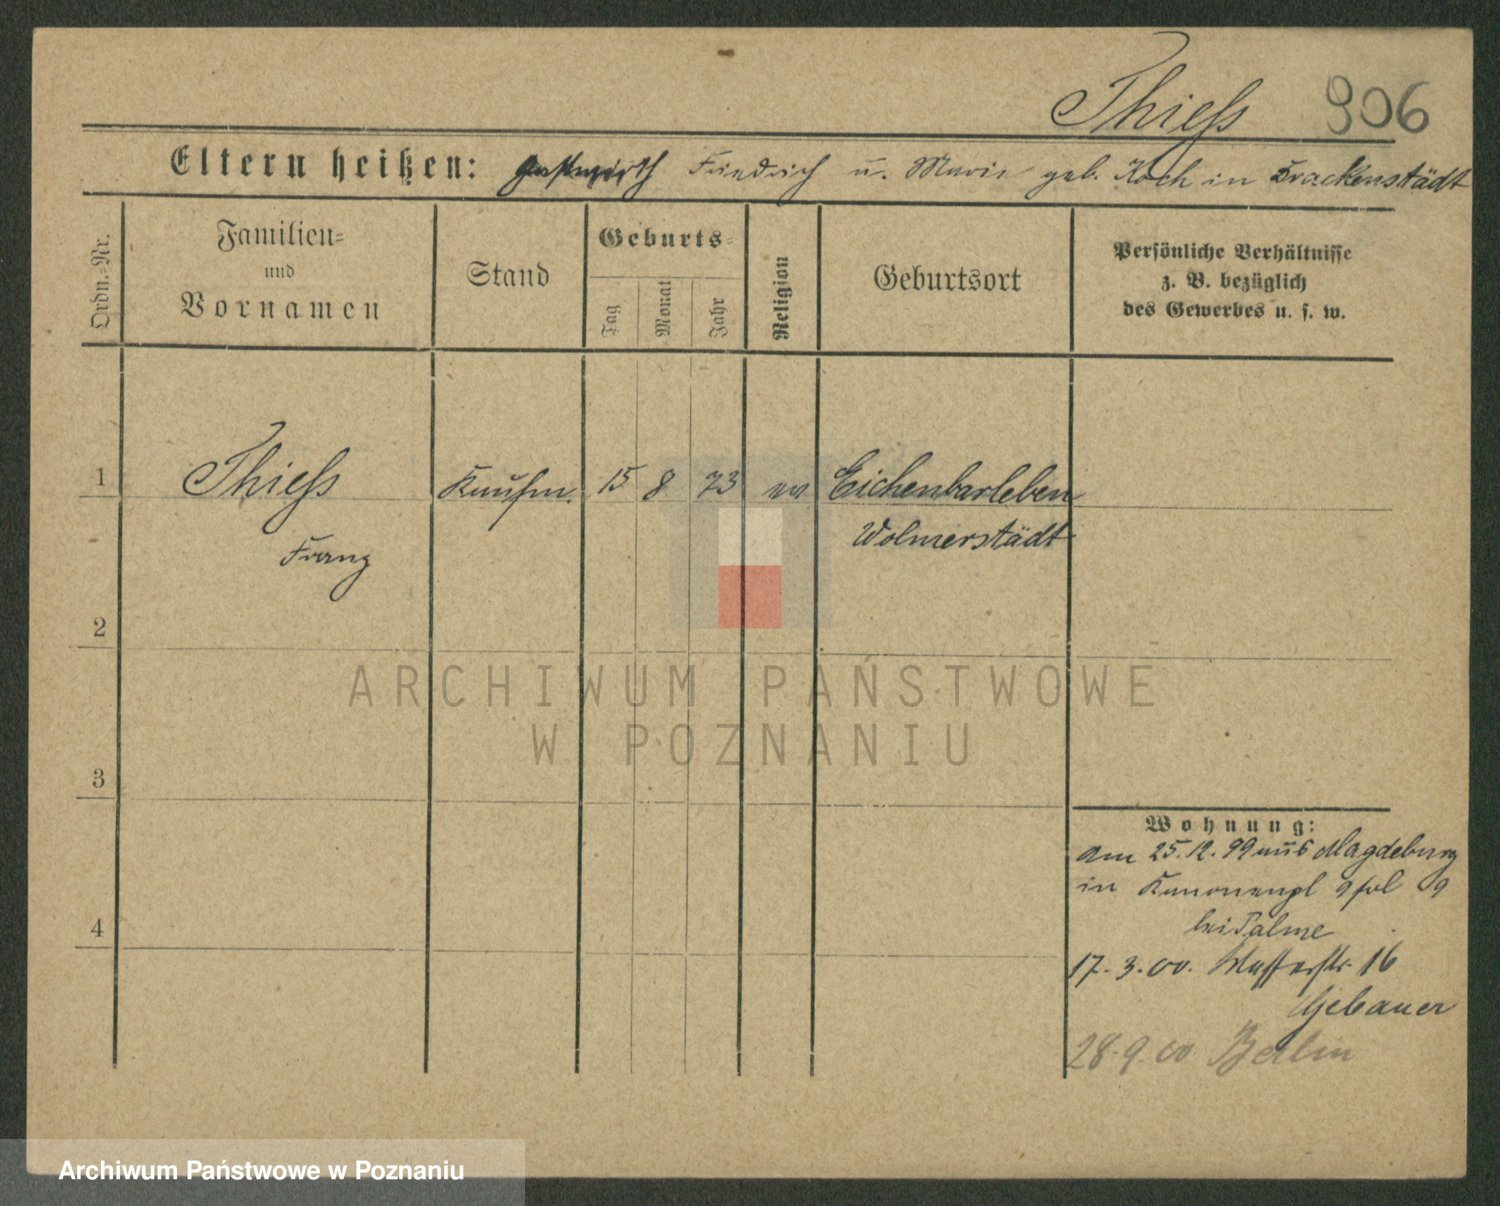 Thieß 906
Eltern heißen: Gastwirth Friedrich u. Marie geb. Koch in Drackenstädt
Ordn.=Nr.
Familien=
und
Vornamen
Stand
Geburts=
Tag
Monat
Jahr
Religion
Geburtsort
Persönliche Verhältnisse
z. B. bezüglich
des Gewerbes u. s. w.
1 Thieß Kaufm. 15 8 73 ev Eichenbarleben
Wolmerstädt
Franz
2
3
4
ARCHIWUM PAŃSTWOWE
W POZNANIU
Wohnung:
am 25.12.99 aus Magdeburg
in Kanonenpl 9
bei Palme
17.3.00. 16
Gebauer
28.9.00 Berlin
Archiwum Państwowe w Poznaniu